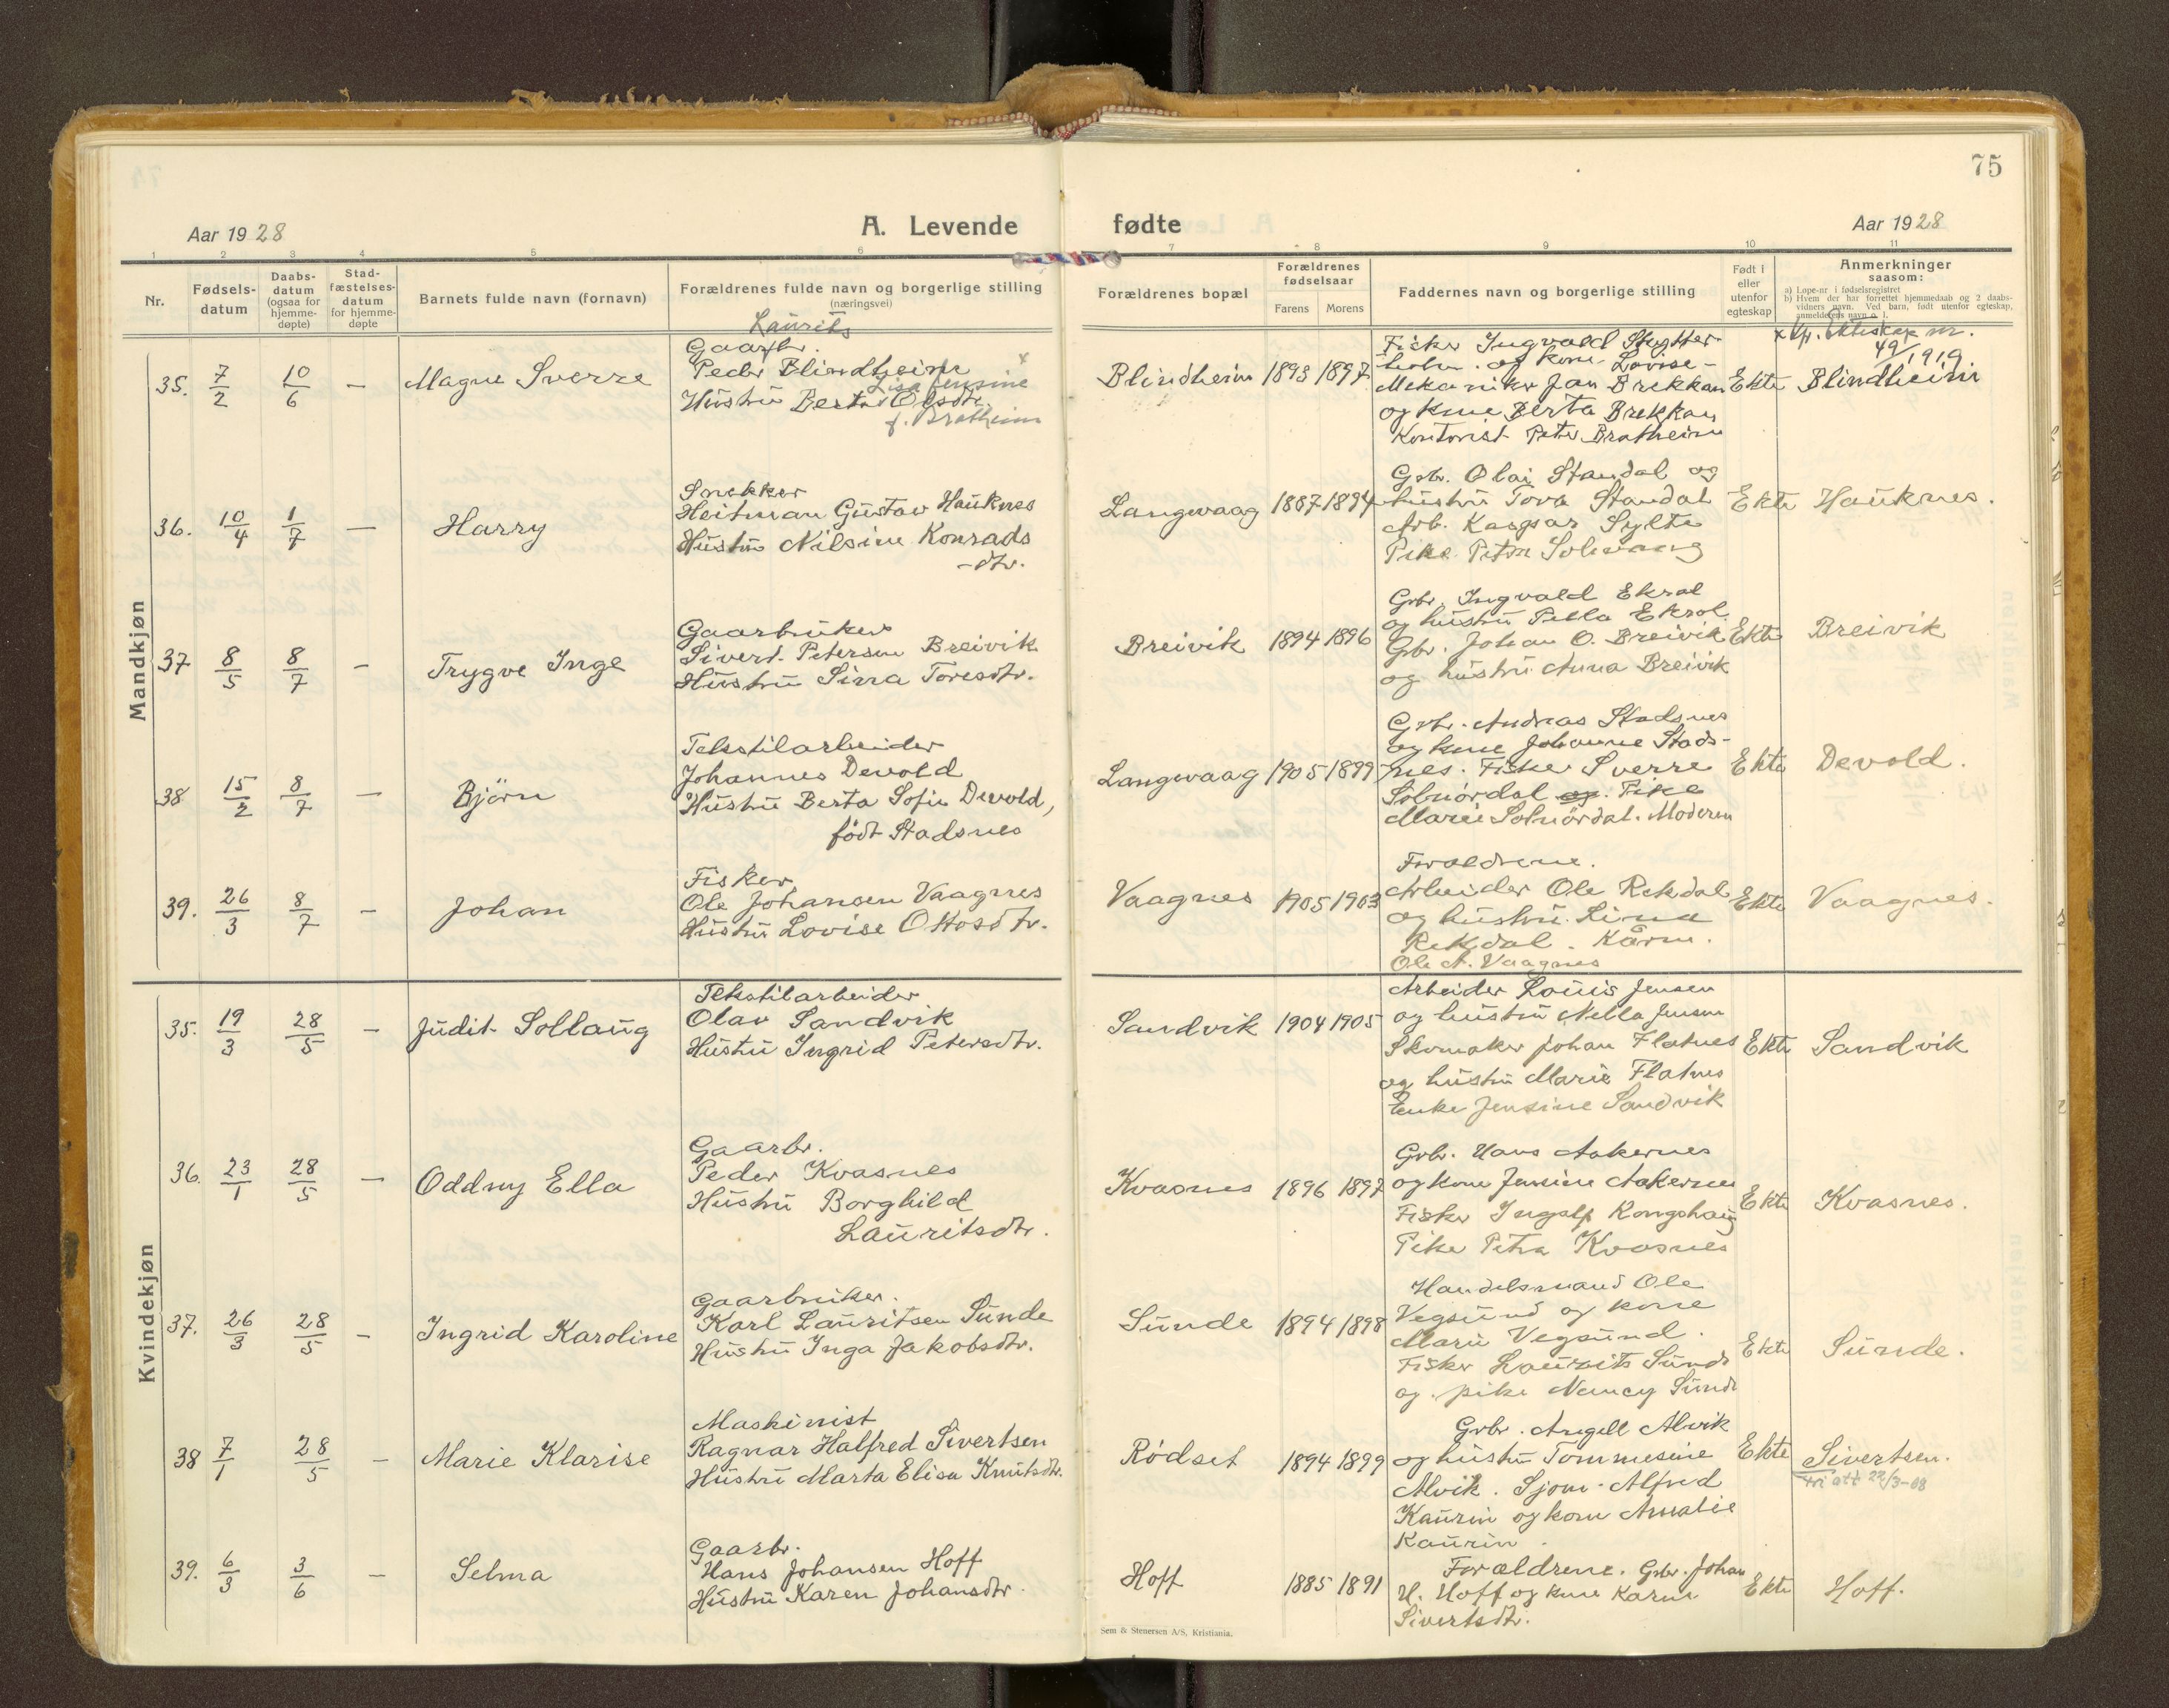 75
Aar 1928
A. Levende
fødte
Aar 1928
1 2 3 4 5 6 7 8 9 10 11
Nr.
Fødsels-
datum
Daabs-
datum
(ogsaa for
hjemme-
døpte)
Stad-
fæstelses-
datum
for hjemme-
døpte
Barnets fulde navn (fornavn)
Forældrenes fulde navn og borgerlige stilling
(næringsvei)
Forældrenes bopæl
Forældrenes
fødselsaar
Farens Morens
Faddernes navn og borgerlige stilling
Født i
eller
utenfor
egteskap
Anmerkninger
saasom:
a) Løpe-nr. i fødselsregistret
b) Hvem der har forrettet hjemmedaab og 2 daabs-
vidners navn. Ved barn, født utenfor egteskap,
anmelderens navn o. l.
Mandkjøn
35. 7/2 10/6 — Magne Sverre
Laurits
Gaarbr.
Peder Blindheim x
Lisa Jensine
Hustru Berta Olsdtr.
f. Bratheim
Blindheim 1893 1897
Fisker Ingvald
holm. og kone Lovise -
Mekaniker Jan Brekkan
og kone Berta Brekkan
Kontorist Peter Bratheim
Ekte
x Ekteskap nr.
49/1919
Blindheim
36. 10/4 1/7 — Harry
Snekker
Heitman Gustav Hauknes
Hustru Nilsine Konrads
-dtr.
Langevaag 1887 1894
Gbr. Olai Standal og
hustru Tora Standal
Arb. Kaspar Sylte
Pike Petra Solvang
Ekte Hauknes.
37 8/5 8/7 — Trygve Inge
Gaarbruker
Sivert Petersen Breivik
Hustru Sina Toresdtr.
Breivik 1894 1896
Gbr. Ingvald Ekrol
og hustru Pella Ekrol
Gbr. Johan O. Breivik
og hustru Anna Breivik
Ekte Breivik
38 15/2 8/7 — Björn
Tekstilarbeider
Johannes Devold
Hustru Berta Sofie Devold,
född Stadsnes
Langevaag 1905 1899
Gbr. Andreas Stadsnes
og kone Johanne Stads-
nes. Fisker Sverre
Solnördal og. Pike
Marie Solnördal. Moderen
Ekte Devold.
39. 26/3 8/7 — Johan
Fisker
Ole Johansen Vaagnes
Hustru Lovise Ottosdtr.
Vaagnes 1905 1903
Forældrene.
Arbeider Ole Rekdal
og hustru Lina
Rekdal. Kårm.
Ole A. Vaagnes
Ekte Vaagnes.
Kvindekjøn
35. 19/3 28/5 — Judit Sollaug
Tekstilarbeider
Olav Sandvik
Hustru Ingrid Petersdtr.
Sandvik 1904 1905
Arbeider Louis Jensen
og hustru Nella Jensen
Skomaker Johan Flatnes
og hustru Marie Flatnes
Enke Jensine Sandvik
Ekte Sandvik
36. 23/1 28/5 — Oddny Ella
Gaarbr.
Peder Kvasnes
Hustru Borghild
Lauritsdtr.
Kvasnes 1896 1897
Gbr. Hans Aakernes
og kone Jensine Aakernes
Fisker Ingolf Kongshaug
Pike Petra Kvasnes
Ekte Kvasnes.
37. 26/3 28/5 — Ingrid Karoline
Gaarbruker.
Karl Lauritsen Sunde
Hustru Inga Jakobsdtr.
Sunde 1894 1898
Handelsmand Ole
Vegsund og kone
Marie Vegsund.
Fisker Laurits Sunde
og. pike Nancy Sunde
Ekte Sunde.
38 7/1 28/5 — Marie Klarise
Maskinist
Ragnar Halfred Sivertsen
Hustru Marta Elisa Knutsdtr.
Rødset 1894 1899
Gbr. Angell Alvik
og hustru Tommesine
Alvik. Sjom. Alfred
Kaurin og kone Amalie
Kaurin.
Ekte Sivertsen.
att 22/3-68
39. 6/3 3/6 — Selma
Gaarbr.
Hans Johansen Hoff
Hustru Karen Johansdtr.
Hoff 1885 1891
Forældrene. Gbr. Johan
H. Hoff og kone Karen
Sivertsdtr.
Ekte Hoff.
Sem & Stenersen A/S, Kristiania.